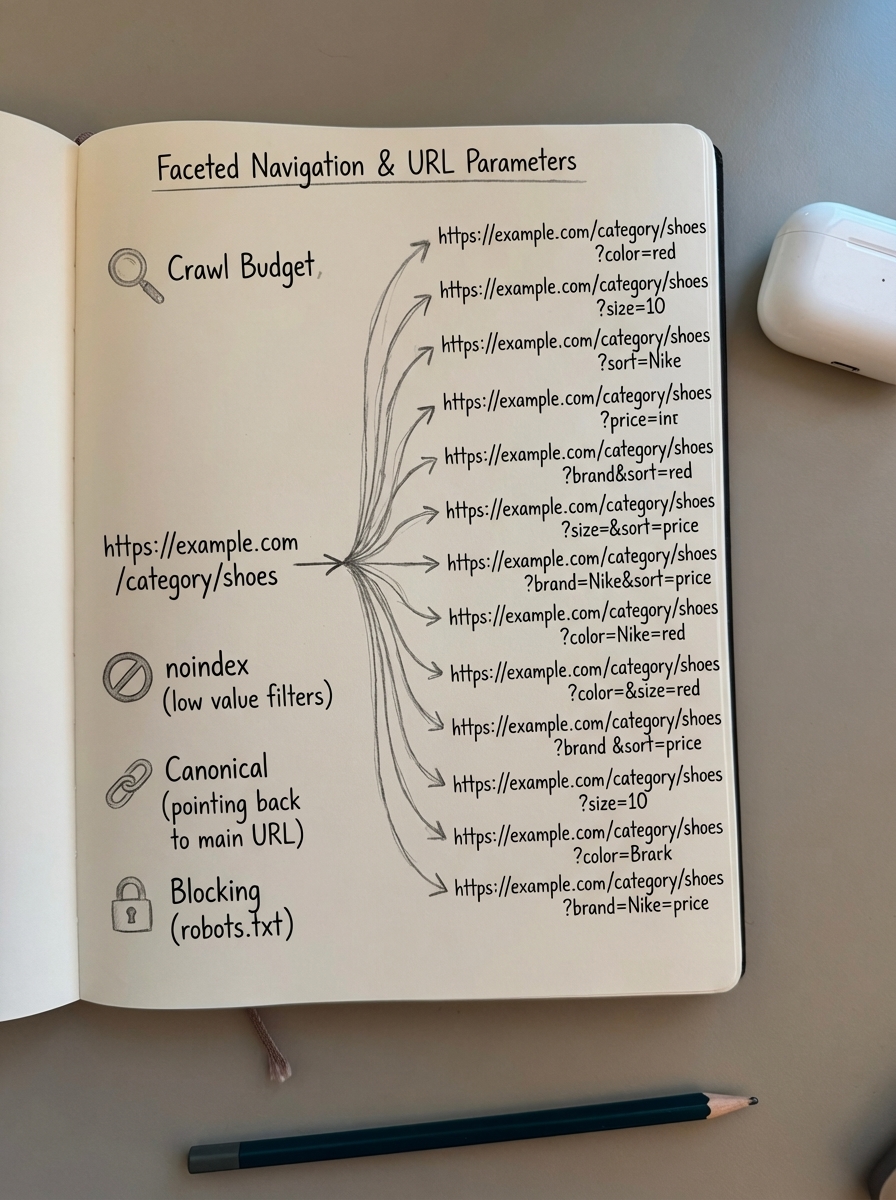 Faceted Navigation & URL Parameters
Crawl Budget,
https://example.com
/category/shoes
noindex
(low value filters)
Canonical
(pointing back
to main URL)
Blocking
(robots.txt)
https://example.com/category/shoes
?color=red
https://example.com/category/shoes
?size=10
https://example.com/category/shoes
?sort=Nike
https://example.com/category/shoes
https://example.com/category/shoes
?brand&sort=red
https://example.com/category/shoes
?size=&sort=price
https://example.com/category/shoes
?brand=Nike&sort=price
https://example.com/category/shoes
?color=Nike=red
https://example.com/category/shoes
?color=&size=red
https://example.com/category/shoes
?brand &sort=price
https://example.com/category/shoes
?size=10
https://example.com/category/shoes
https://example.com/category/shoes
?brand=Nike=price